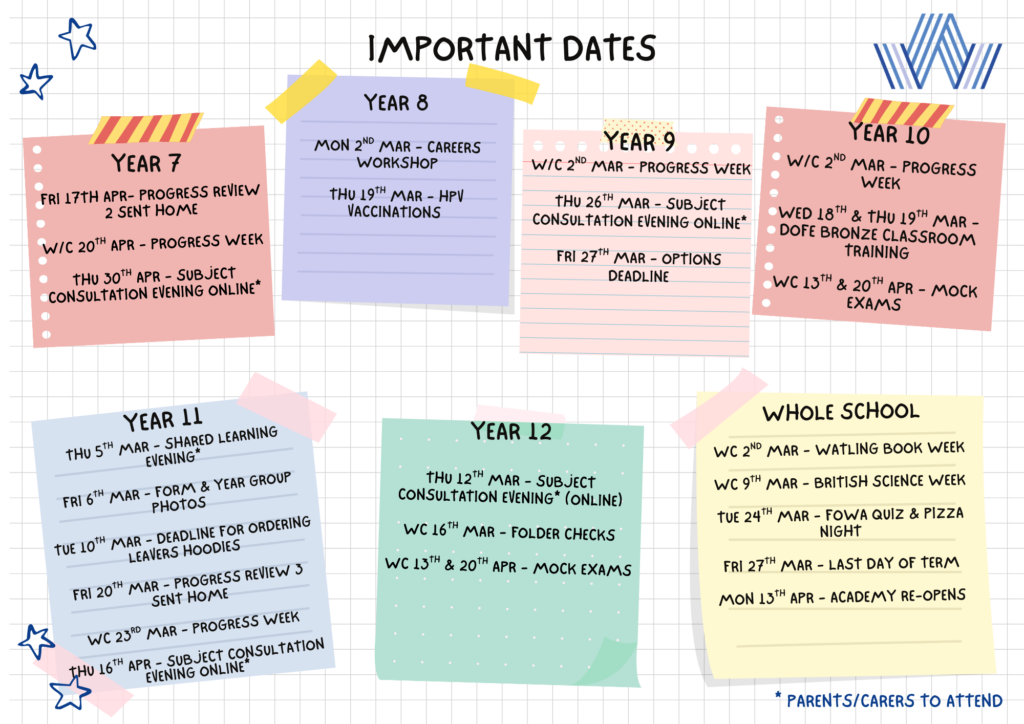 IMPORTANT DATES
YEAR 7
FRI 17TH APR- PROGRESS REVIEW
2 SENT HOME
W/C 20TH APR - PROGRESS WEEK
THU 30TH APR - SUBJECT
CONSULTATION EVENING ONLINE*
YEAR 8
MON 2ND MAR - CAREERS
WORKSHOP
THU 19TH MAR - HPV
VACCINATIONS
YEAR 9
W/C 2ND MAR - PROGRESS WEEK
THU 26TH MAR - SUBJECT
CONSULTATION EVENING ONLINE*
FRI 27TH MAR - OPTIONS
DEADLINE
YEAR 10
W/C 2ND MAR - PROGRESS
WEEK
WED 18TH & THU 19TH MAR -
DOFE BRONZE CLASSROOM
TRAINING
WC 13TH & 20TH APR - MOCK
EXAMS
YEAR 11
THU 5TH MAR - SHARED LEARNING
EVENING*
FRI 6TH MAR - FORM & YEAR GROUP
PHOTOS
TUE 10TH MAR - DEADLINE FOR ORDERING
LEAVERS HOODIES
FRI 20TH MAR - PROGRESS REVIEW 3
SENT HOME
WC 23RD MAR - PROGRESS WEEK
THU 16TH APR - SUBJECT CONSULTATION
EVENING ONLINE*
YEAR 12
THU 12TH MAR - SUBJECT
CONSULTATION EVENING* (ONLINE)
WC 16TH MAR - FOLDER CHECKS
WC 13TH & 20TH APR - MOCK EXAMS
WHOLE SCHOOL
WC 2ND MAR - WATLING BOOK WEEK
WC 9TH MAR - BRITISH SCIENCE WEEK
TUE 24TH MAR - FOWA QUIZ & PIZZA
NIGHT
FRI 27TH MAR - LAST DAY OF TERM
MON 13TH APR - ACADEMY RE-OPENS
* PARENTS/CARERS TO ATTEND